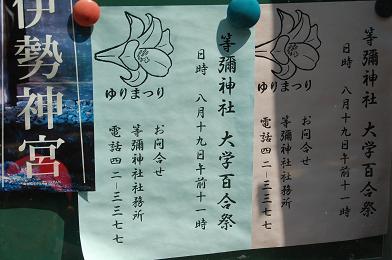 伊勢神宮
等彌神社 大学百合祭
日時 八月十九日午前十一時
お問合せ
等彌神社社務所
電話四二-三三七七
ゆりまつり
等彌神社 大学百合祭
日時 八月十九日午前十一時
お問合せ
等彌神社社務所
電話四二-三三七七
ゆりまつり